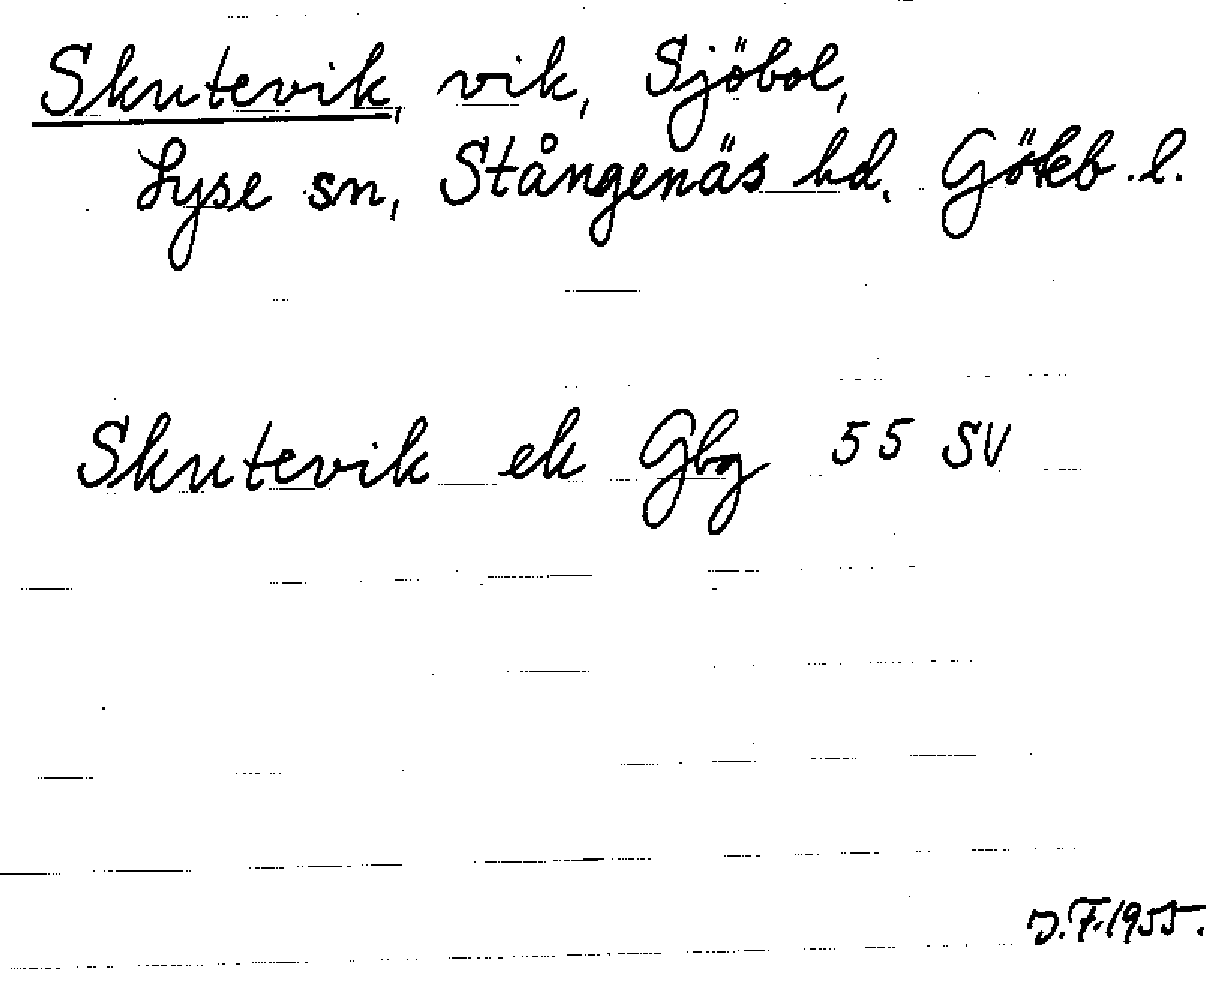 Skutevik, vik, Sjöbol,
Lyse sn, Stångenäs hd. Göteb. l.
Skutevik ek Gbg 55 SV
J.F. 1955.